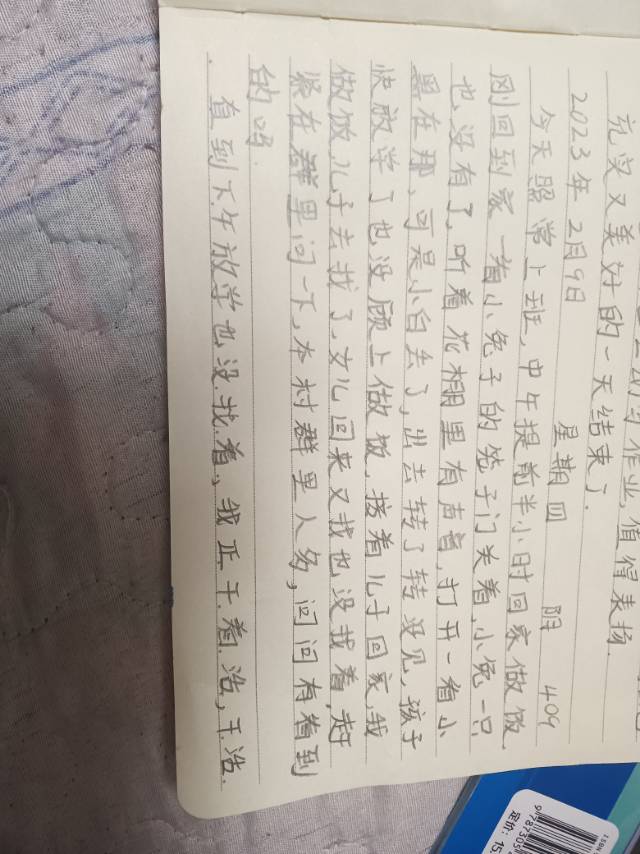 作业，值得表扬.
充实又美好的一天结束了.
2023年2月9日 星期四 阴 409
今天照常上班，中午提前半小时回家做饭.
刚回到家一看小兔子的笼子门关着，小兔一只
也没有了，听着花棚里有声音，打开一看小
黑在那，可是小白丢了，出去转了转没见，孩子
快放学了也没顾上做饭，接着儿子回家，我
做饭，儿子去找了，女儿回来又找也没找着，赶
紧在群里问一下，本村群里人多，问问有看到
的吗.
直到下午放学也没找着，我正干着活，王浩.
ISBN
定价：15